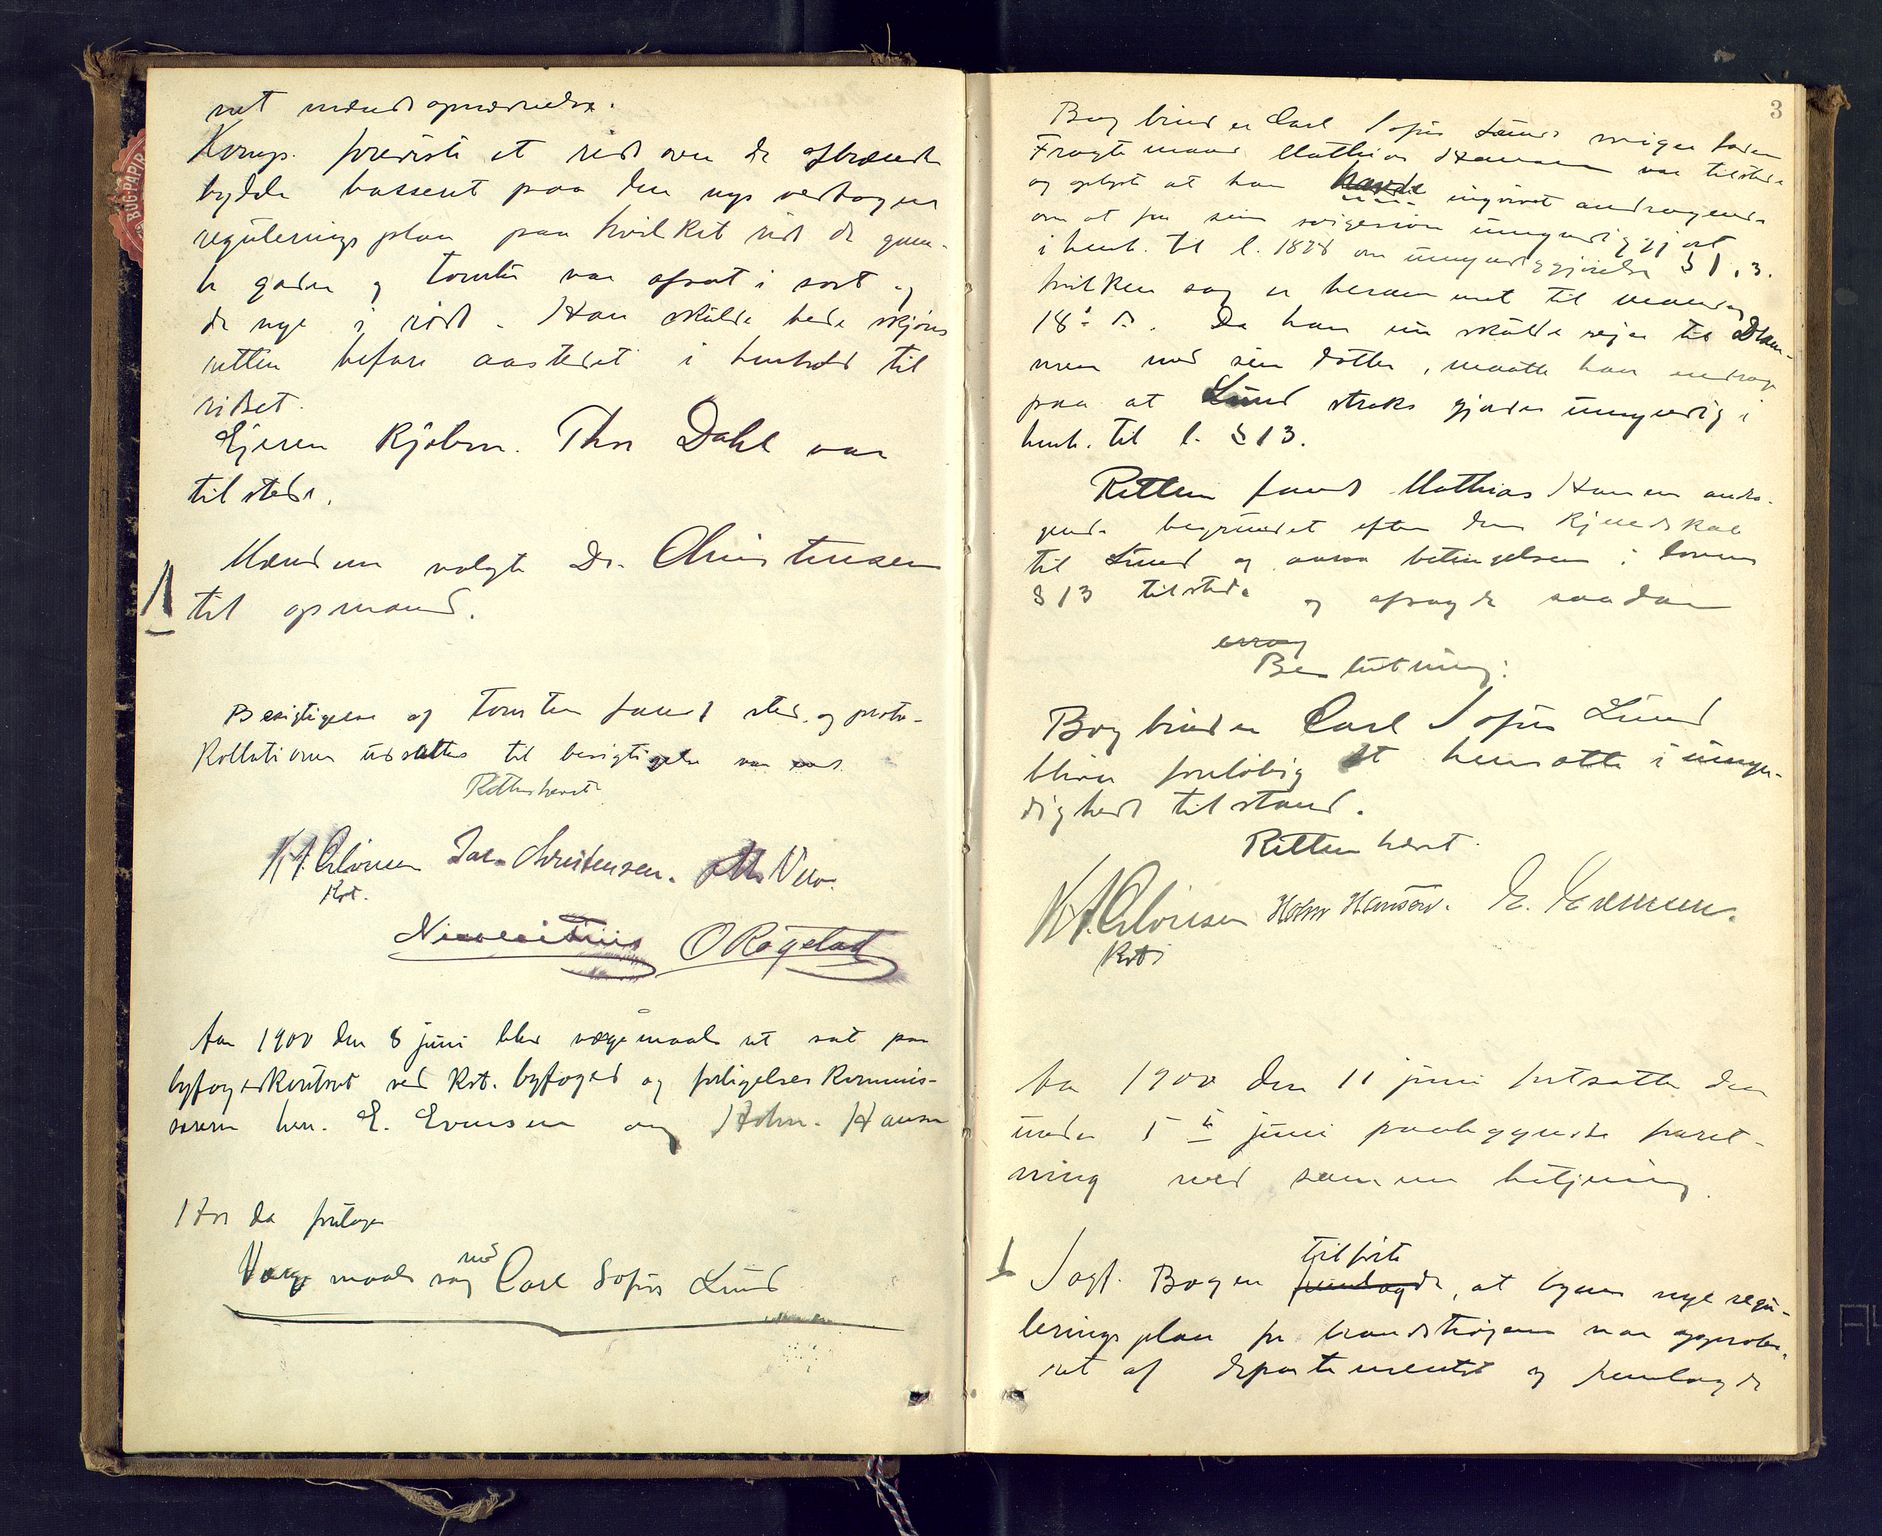 ret mænds opnævnelse.
Komp. foreviste et rids over de afbrændte
bydele basseret paa den nys vedtagne
reguleringsplan paa hvilket rids de gam-
le gader og tomter var afsat i sort og
de nye i rødt. Han skulde bede skjøns
retten befare aastedet i henhold til
ridset.
Ejeren kjøbm. Thor Dahl var
tilstede.
Mændene valgte Dr. Christensen
til opmand.
Besigtigelse af tomten fandt sted, og proto-
kollationen udsattes til besigtigelse var
Retten hævet
K A Christensen. O Rogstad
Aar 1900 den 8 juni blev værgemaalsret sat paa
byfogedkontoret ved kst. byfoged og forligelseskommis-
særerne hrr. E. Evensen og Holm-Hansen
Hvor da foretoges
Værgemaalssag mod Carl Sofus Lund
3
Bogbinder Carl Sofus Lunds svigerfader
Fragtemand Mathias Hansen var tilstede
og oplyste at han havde ingivet andragende
om at faa sin svigersøn umyndiggjort
i henh. til l. 1898 om umyndiggjørelse § 1, 3.
hvilken sag er berammet til mandag
18de ds. Da han nu skulde rejse til Dram-
men med sin datter, maatte han andrage
paa at Lund straks gjøres umyndig i
henh. til l. § 13.
Retten fandt Mathias Hansens andra-
gende begrundet efter dens kjendskab
til Lund og ansaa betingelsen i lovens
§ 13 tilstede og afsagde saadan
Beslutning:
Bogbinder Carl Sofus Lund
bliver foreløbig at hensætte i umyn-
digheds tilstand.
Retten hævet.
K A Holm Hansen. E. Evensen.
Kst.
Aar 1900 den 11 juni fortsattes den
under 5te juni paabegyndte forret-
ning med samme betjening.
Sagf. Bogen tilførte fremlagde, at byens nye regu-
leringsplan for brandstrøgene var approbe-
ret af departementet og fremlagde